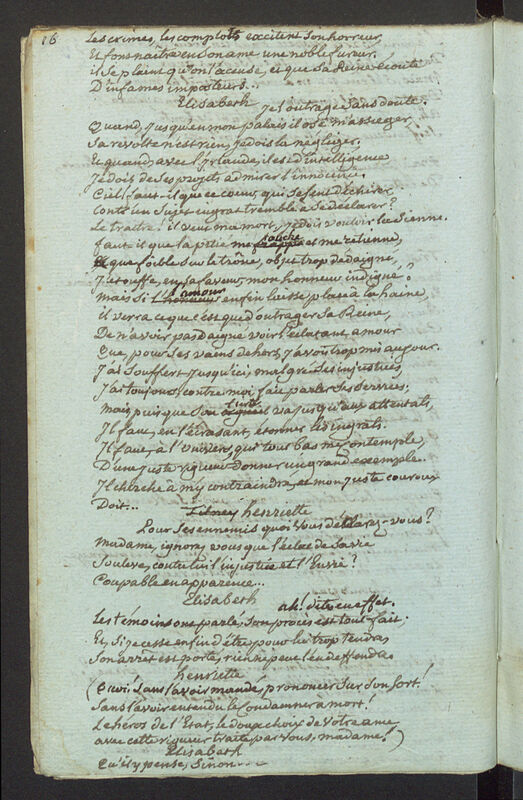 16
Les crimes, les complots excitent son horreur,
Et font naître en son ame une noble fureur.
il se plaint qu'on l'accuse, et que sa Reine écoute
D'infames imposteurs...
Elisabeth
Je l'outrage sans doute.
Quand, jusqu'en mon palais il ose m'assieger,
Sa revolte n'est rien, je dois la negliger,
Et quand, avec l'Irlande, il est d'intelligence
Je dois de ses projets admirer l'innocence.
Ciel! faut-il que ce coeur, qui se sent déchirer
Contre un sujet ingrat tremble à se déclarer?
Le traitre! il veut ma mort, je dois vouloir la sienne.
faut-il que la pitié me touche et me retienne,
que foible sur le trône, objet trop dedaigné,
J'étouffe, en sa faveur, mon honneur indigné?
mais si l'amour enfin laisse place à la haine,
il verra ce que c'est que d'outrager sa Reine,
De n'avoir pas daigné voir l'éclatant amour
Que, pour ses vains dehors, j'avois trop mis au jour.
J'ai souffert jusqu'ici, malgré ses injustices,
J'ai toujours, contre moi, fait parler ses services;
mais, puisque son va jusqu'aux attentats,
Il faut, en l'écrasant, étonner les ingrats.
Il faut, à l'Univers, qui tous bas me contemple,
D'une juste rigueur donner un grand exemple.
Il cherche à m'y contraindre, et mon juste couroux
Doit...
Tilney henriette
Pour ses ennemis quoi! vous déclarez-vous?
Madame, ignorez vous que l'éclat de sa vie
Souleve, contre lui l'injustice et l'Envie?
Coupable en apparence...
Elisabeth
ah! dites en effet.
Les témoins ont parlé, son procès est tout fait.
Et, si je cesse enfin d'être, pour lui trop tendre,
Son arrêt est porté, rien ne peut l'en deffendre
henriette
(Qui! sans l'avoir mandé, prononcer sur son sort!
Sans l'avoir entendu le condamner à mort!
Le heros de l'Etat, le doux choix de votre ame
avec cette rigueur traité par vous, madame!)
Elisabeth
Qu'il y pense, sinon....